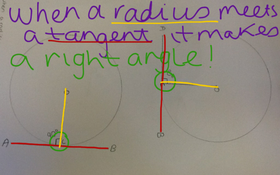 When a radius meets
a tangent it makes
a right angle!
A
B